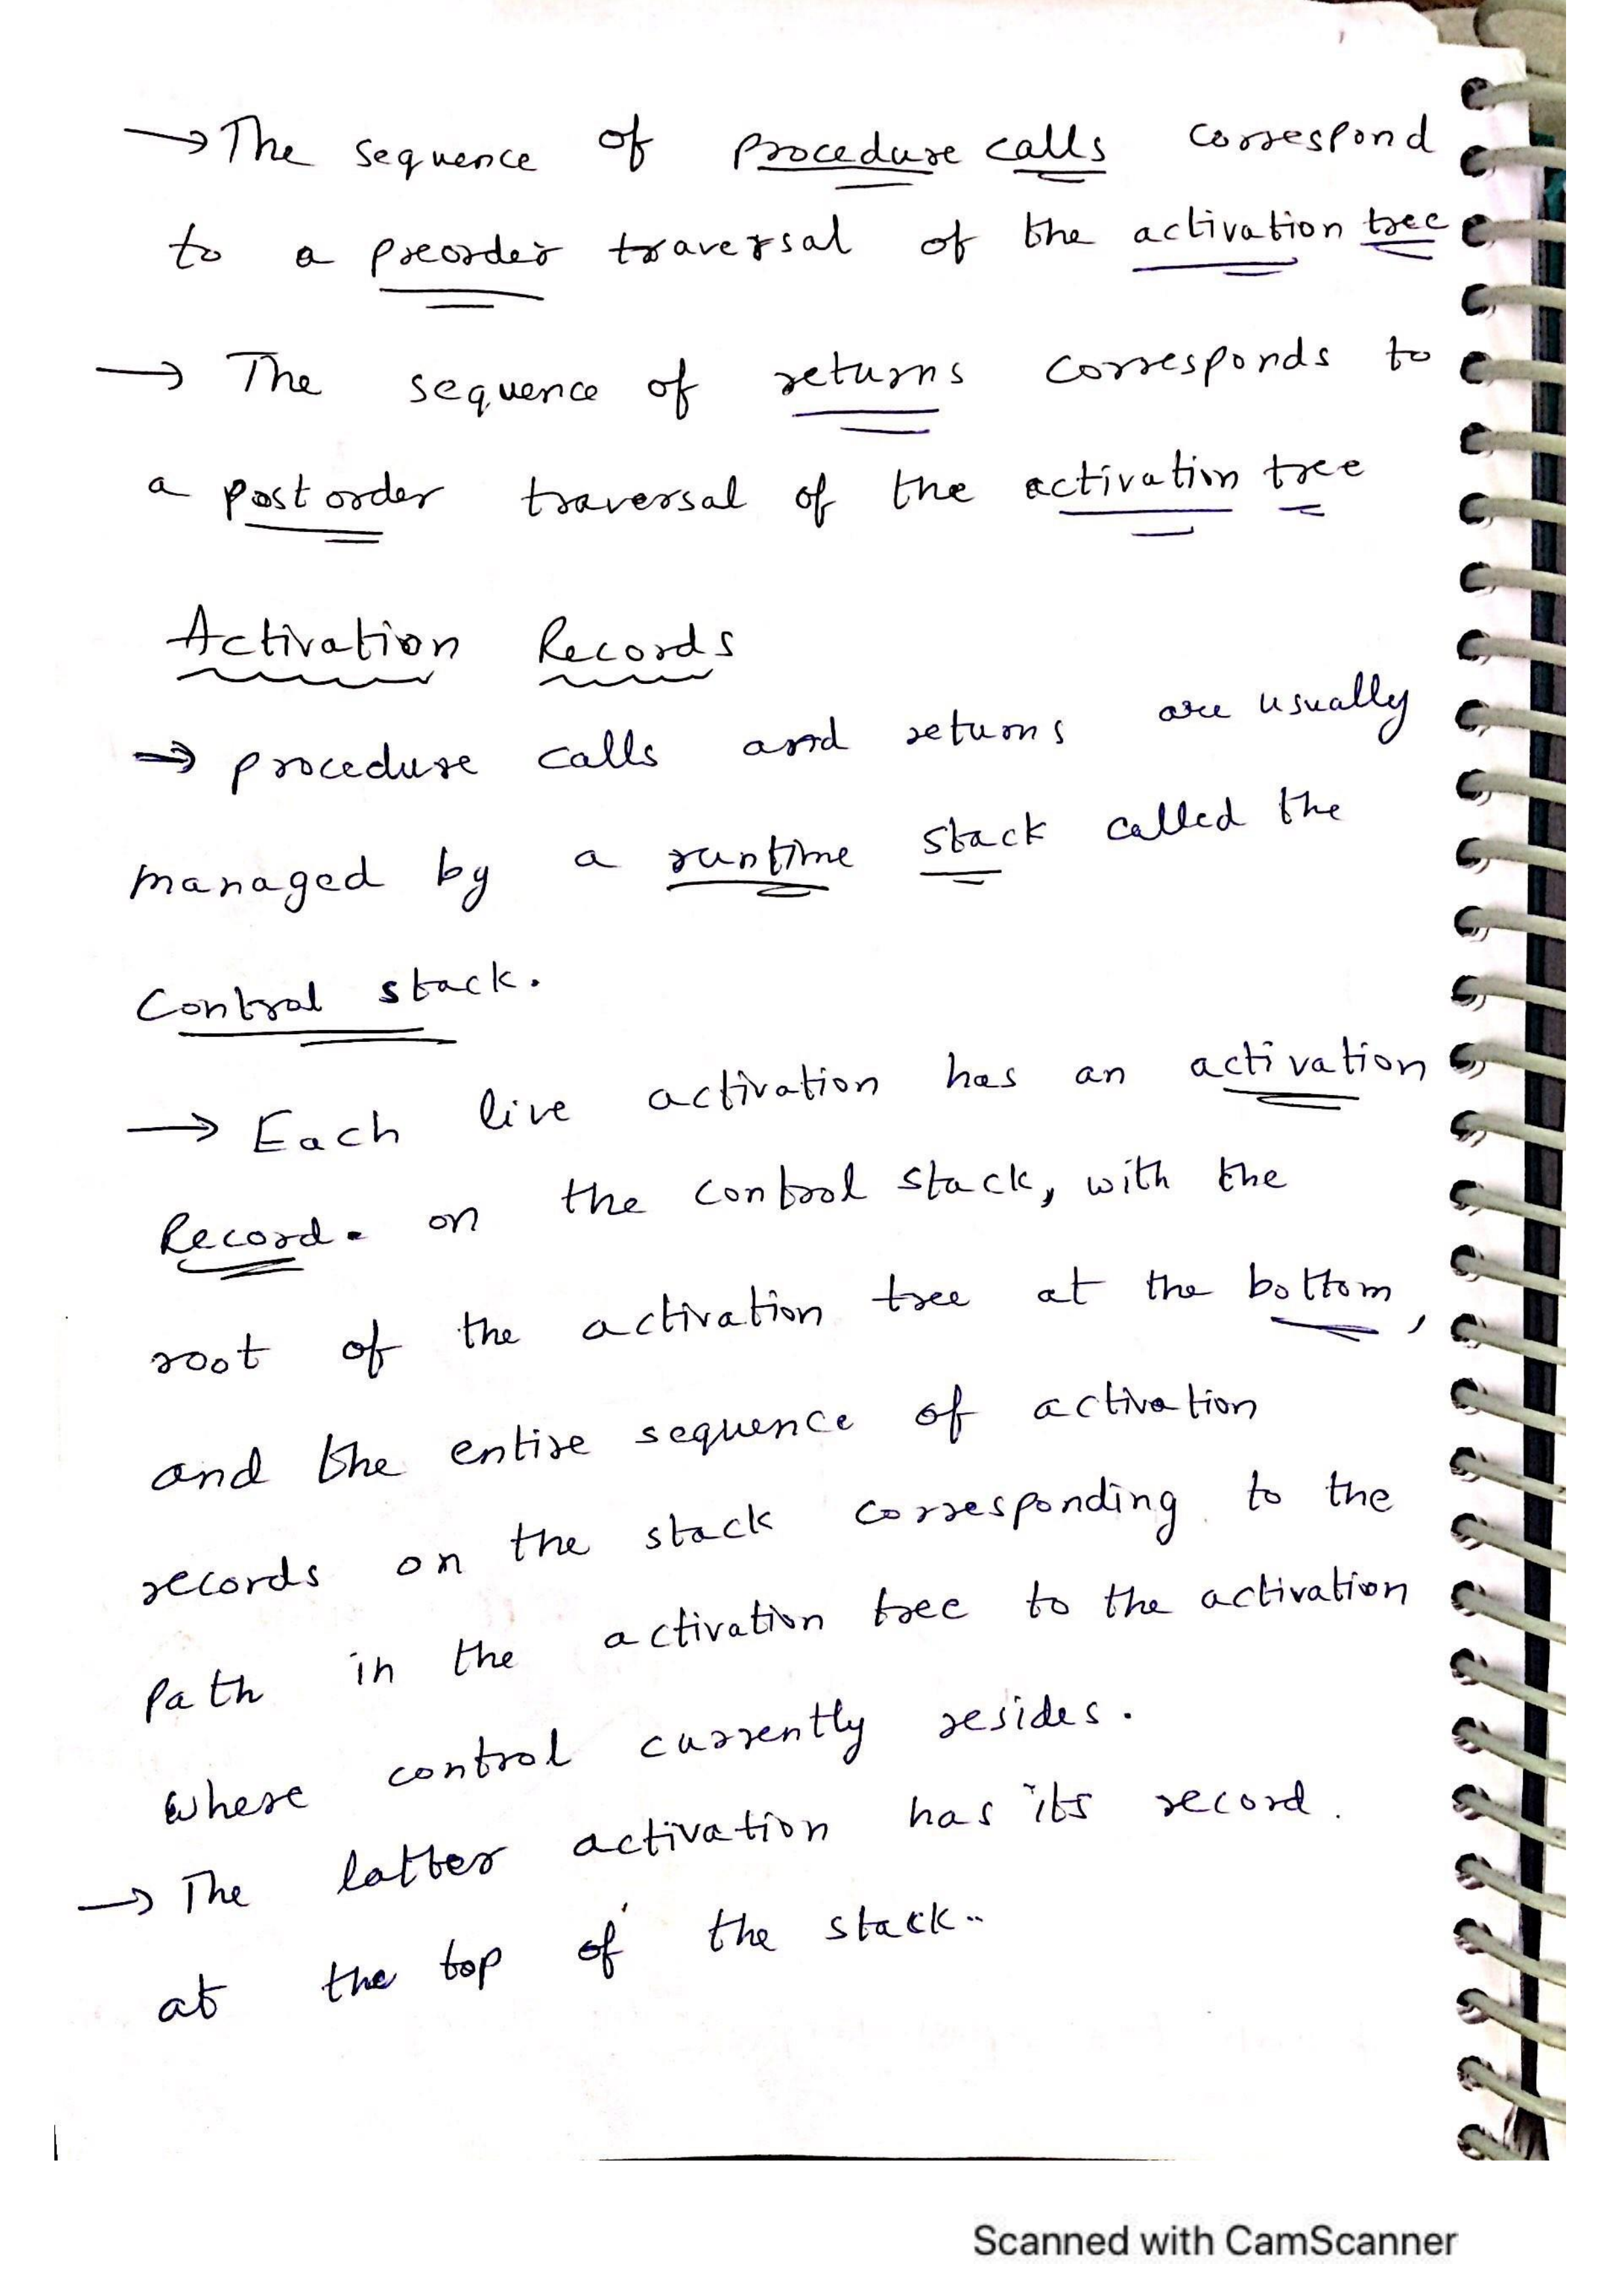 → The sequence of procedure calls correspond
to a preorder traversal of the activation tree
→ The sequence of returns corresponds to
a post order traversal of the activation tree
Activation Records
→ procedure calls and returns are usually
managed by a runtime stack called the
Control stack.
→ Each live activation has an activation
Record. on the control stack, with the
root of the activation tree at the bottom,
and the entire sequence of activation
records on the stack corresponding to the
path in the activation tree to the activation
where control currently resides.
→ The latter activation has its record.
at the top of the stack..
Scanned with CamScanner